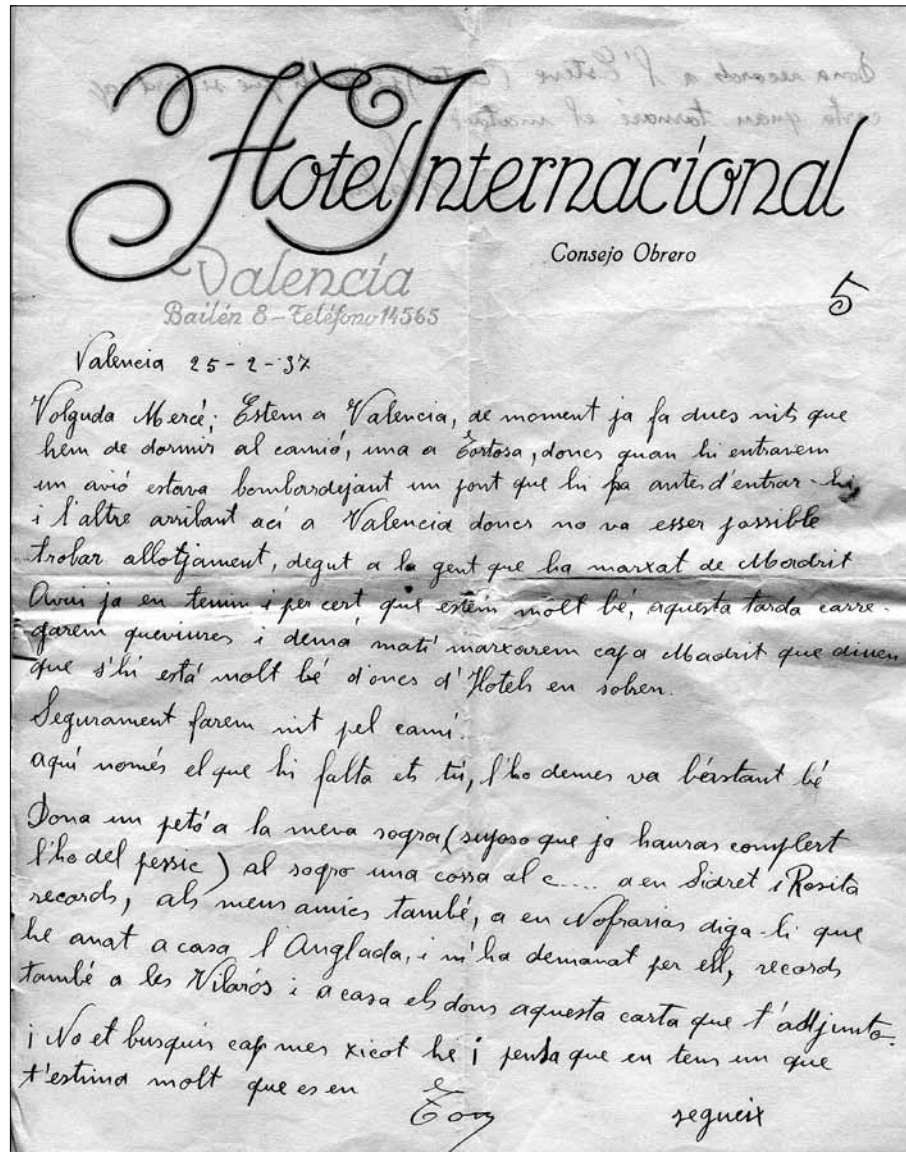 Hotel Internacional
Consejo Obrero
Valencia
Bailén 8 - Teléfono 14565
5
Valencia 25 - 2 - 37
Volguda Mercé; Estem a Valencia, de moment ja fa dues nits que
hem de dormir al camió, una a Tortosa, doncs quan hi entravem
un avió estava bombardejant un pont que hi ha antes d'entrar-hi
i l'altre arribant ací a Valencia doncs no va esser possible
trobar allotjament, degut a la gent que ha marxat de Madrit
Avui ja en tenim i per cert que estem molt bé, aquesta tarda carre-
garem queviures i demá matí marxarem cap a Madrit que diuen
que s'hi está molt bé doncs d'Hotels en sobren.
Segurament farem nit pel camí.
aquí només el que hi falta ets tú, l'ho demes va bastant bé
Dona un petó a la meva sogra (suposo que ja hauras complert
l'ho del pessic) al sogro una cossa al c.... a en Sidret i Rosita
records, als meus amics també, a en Nofrarias diga-li que
he anat a casa l'Anglada, i m'ha demanat per ell, records
també a les Vilarós i a casa els dons aquesta carta que t'adjunto.
¡No et busquis cap mes xicot he¡ pensa que en tens un que
t'estima molt que es en
Tom segueix